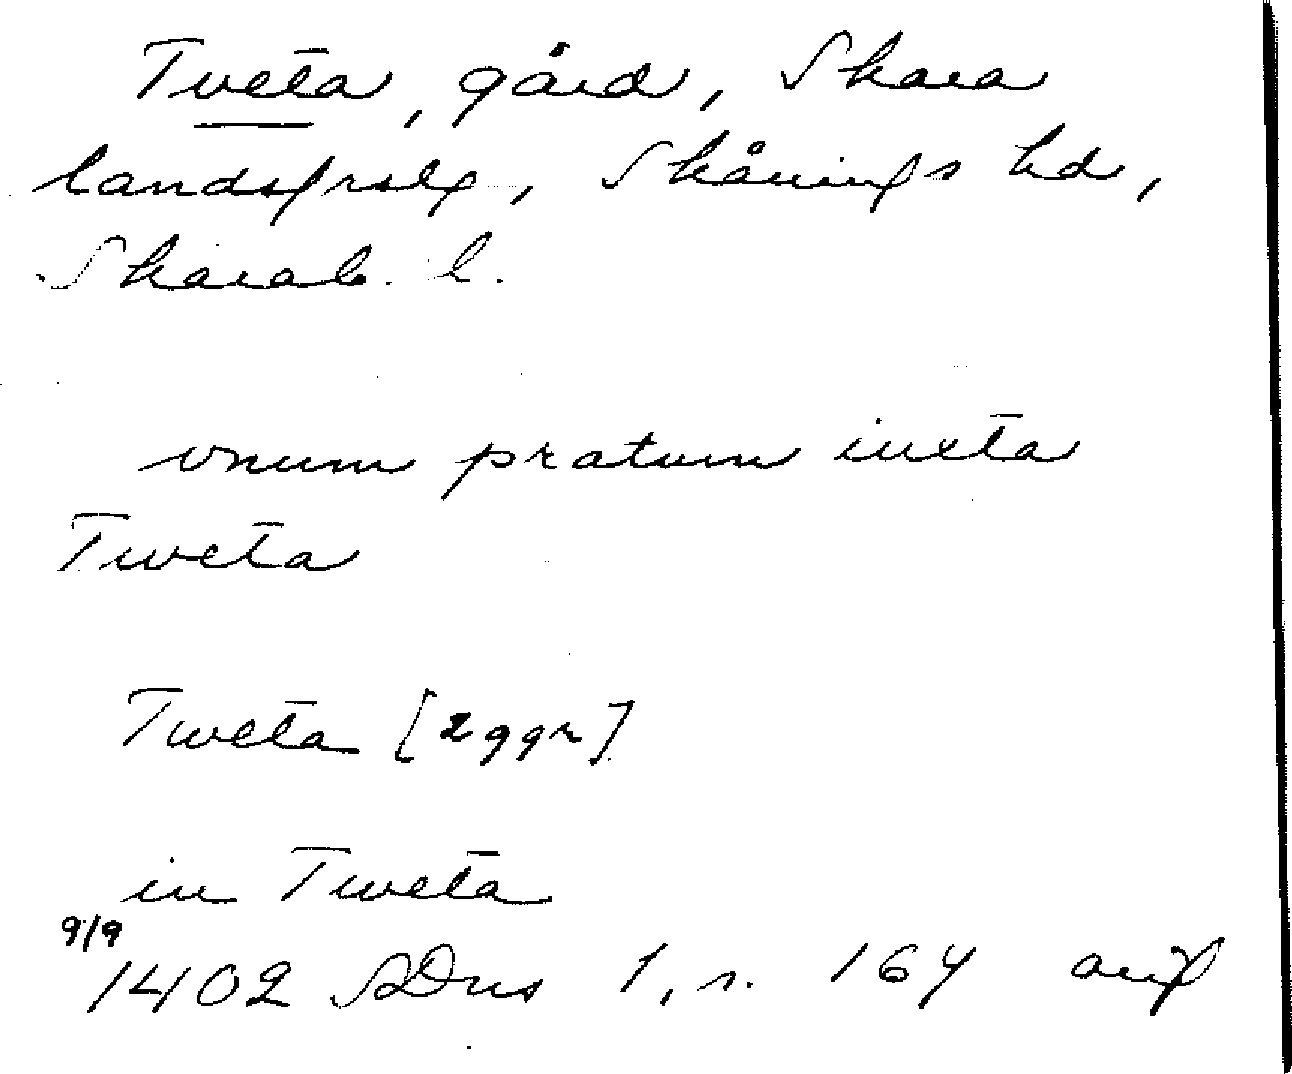 Tveta, gård, Skara
landsförs, Skånings hd,
Skarab. l.
vnum pratum iuxta
Tweta
Tweta [2 ggr]
in Tweta
9/9
1402 SDns 1, s. 164 avs